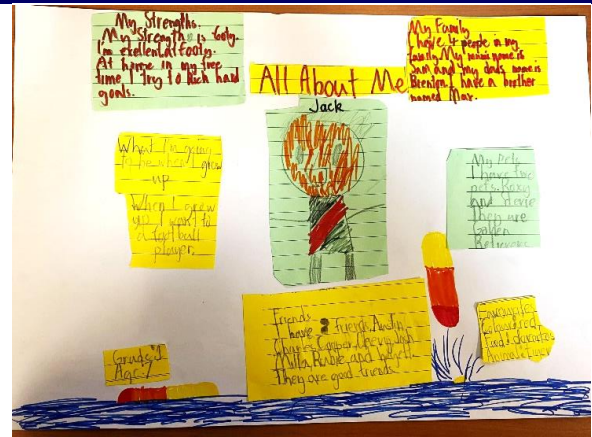 My Strengths.
My Strength is footy.
I'm exellent at footy.
At home in my free
time I try to kick hard
goals.
All About Me
Jack
My Family
I have 4 people in my
family. My mums name is
Sam and my dads name is
Brenton I have a brother
named Max.
What I'm going
to be when I grow
up
When I grow
up I want to
a football
player.
My Pets
I have two
pets. Roxy
and Stevie
They are
Friends
I have Friends. Austin
Charles, Cooper,
Milla, Robbie and
They are good friends.
Grade: 1
Age: 7
Favourite
Colour: red
Animal: tiger